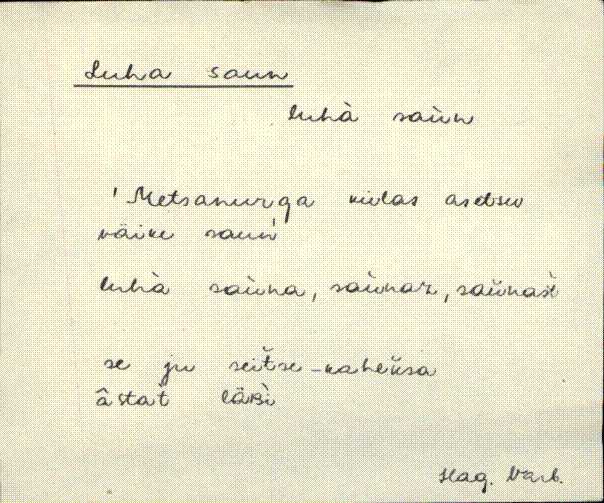 Luha saun
luhà saùn
'Metsanurga külas asetsev
väike saun'
luhà saùna, saùnaz, saùnašt
se ju seitse-kaheksa
âstat́ täzi
Hag. Varb.